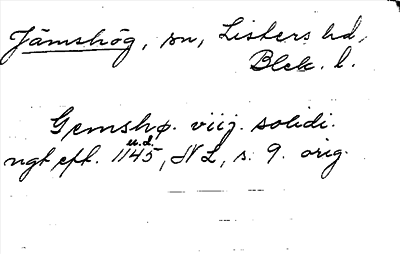 Jämshög, sn, Listers hd,
Blek. l.
Gemshø. viij. solidi.
u.d.
ngt eft. 1145, NL, s. 9. orig.